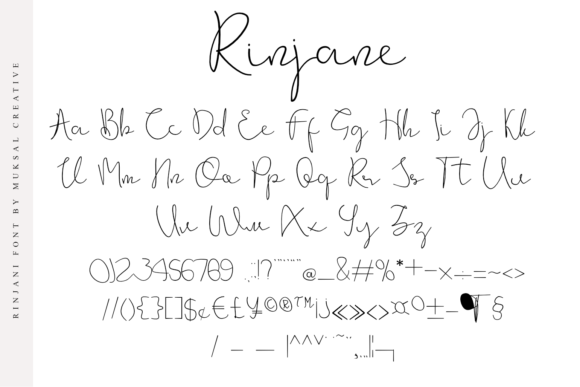 RINJANI FONT BY MUKSAL CREATIVE
Rinjane
Aa Bb Cc Dd Ee Ff Gg Hh Ii Jj Kk
Ll Mm Nn Oo Pp Qq Rr Ss Tt Uu
Vv Ww Xx Yy Zz
0123456789 .:!? @_&#%*+-×÷=~<>
//(){}[]$¢€£¥©®™¡¿«»‹›¤°±_¶§
/ – — |^^ˇ ¨ ~ ¨ ,..|¦¬